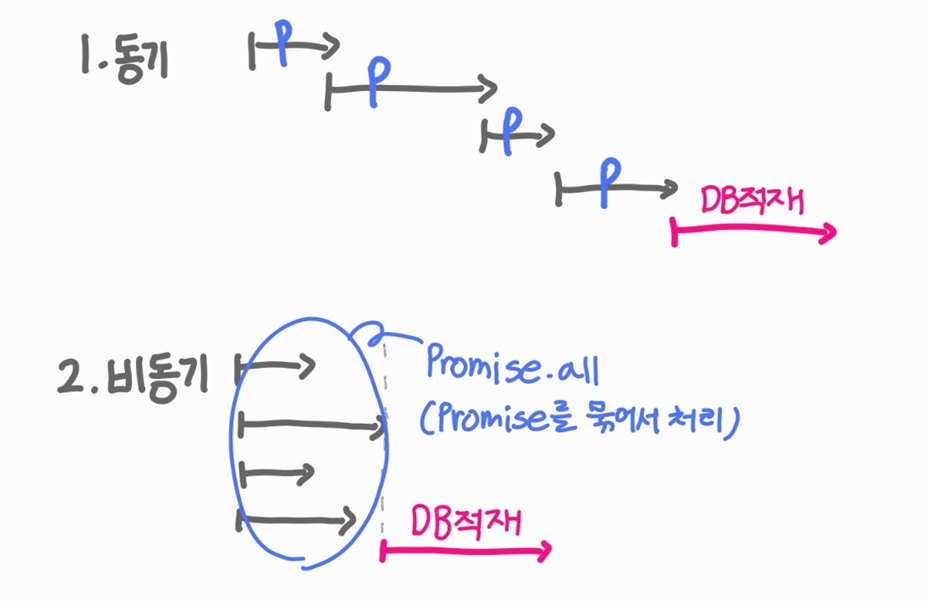 1. 동기
P
P
P
P
DB적재
2. 비동기
Promise.all
(Promise를 묶어서 처리)
DB적재